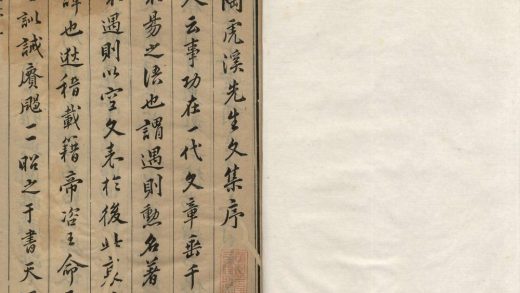 陶虎溪先生文集序
人云事功在一代文章垂千
易之語也謂遇則勳名著
遇則以空文表於後此
也逖稽載籍帝咨王命
訓誡賡颺一一昭之于書天